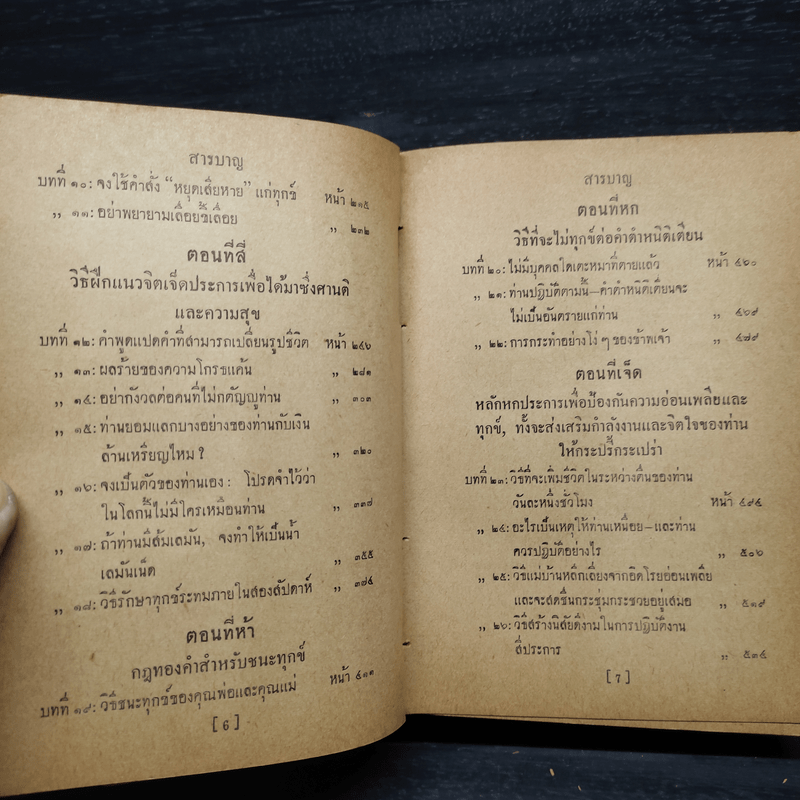 สารบาญ
บทที่ ๑๐: จงใช้คำสั่ง “หยุดเสียหาย” แก่ทุกข์ หน้า ๒๑๕
„ ๑๑: อย่าพยายามเลื่อยขี้เลื่อย „ ๒๓๒
ตอนที่สี่
วิธีฝึกแนวจิตเจ็ดประการเพื่อได้มาซึ่งศานติ
และความสุข
บทที่ ๑๒: คำพูดแปดคำที่สามารถเปลี่ยนรูปชีวิต หน้า ๒๔๖
„ ๑๓: ผลร้ายของความโกรธแค้น „ ๒๘๑
„ ๑๔: อย่ากังวลต่อคนที่ไม่กตัญญูท่าน „ ๓๐๓
„ ๑๕: ท่านยอมแลกบางอย่างของท่านกับเงิน
ล้านเหรียญไหม ? „ ๓๒๐
„ ๑๖: จงเป็นตัวของท่านเอง : โปรดจำไว้ว่า
ในโลกนี้ไม่มีใครเหมือนท่าน „ ๓๓๗
„ ๑๗: ถ้าท่านมีส้มเลมัน, จงทำให้เป็นน้ำ
เลมันเน็ด „ ๓๕๕
„ ๑๘: วิธีรักษาทุกข์ระทมภายในสองสัปดาห์ „ ๓๗๔
ตอนที่ห้า
กฎทองคำสำหรับชนะทุกข์
บทที่ ๑๙: วิธีชนะทุกข์ของคุณพ่อและคุณแม่ หน้า ๔๑๑
[ 6 ]
สารบาญ
ตอนที่หก
วิธีที่จะไม่ทุกข์ต่อคำตำหนิติเตียน
บทที่ ๒๐: ไม่มีบุคคลใดเตะหมาที่ตายแล้ว หน้า ๔๖๐
„ ๒๑: ท่านปฏิบัติตามนี้—คำตำหนิติเตียนจะ
ไม่เป็นอันตรายแก่ท่าน „ ๔๖๙
„ ๒๒: การกระทำอย่างโง่ ๆ ของข้าพเจ้า „ ๔๗๙
ตอนที่เจ็ด
หลักหกประการเพื่อป้องกันความอ่อนเพลียและ
ทุกข์, ทั้งจะส่งเสริมกำลังงานและจิตใจของท่าน
ให้กระปรี้กระเปร่า
บทที่ ๒๓: วิธีที่จะเพิ่มชีวิตในระหว่างตื่นของท่าน
วันละหนึ่งชั่วโมง หน้า ๔๙๔
„ ๒๔: อะไรเป็นเหตุให้ท่านเหนื่อย—และท่าน
ควรปฏิบัติอย่างไร „ ๕๐๖
„ ๒๕: วิธีแม่บ้านหลีกเลี่ยงจากอิดโรยอ่อนเพลีย
และจะสดชื่นกระชุ่มกระชวยอยู่เสมอ „ ๕๑๙
„ ๒๖: วิธีสร้างนิสัยดีงามในการปฏิบัติงาน
สี่ประการ „ ๕๓๔
[ 7 ]